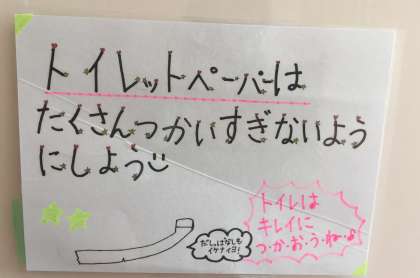 トイレットペーパーは
たくさんつかいすぎないよう
にしよう
だしっぱなしも
イケナイヨ!
トイレは
キレイに
つ・か・お・う・ね・♪